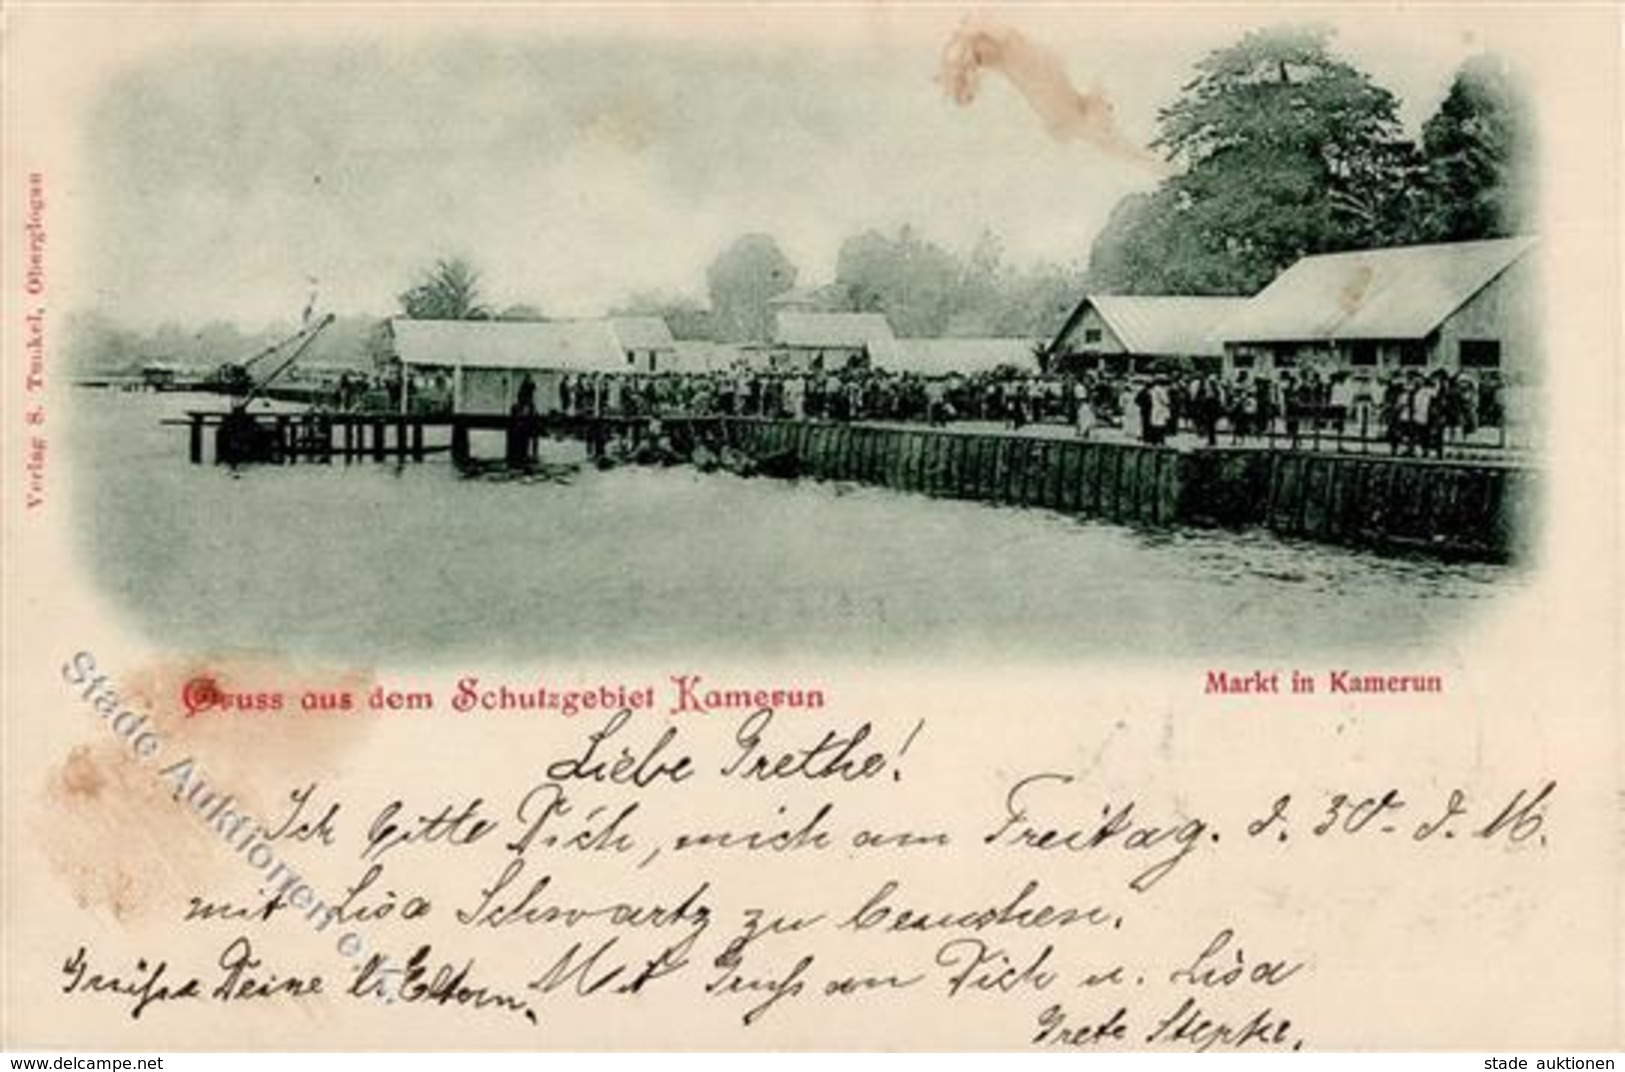 Verlag S. Tunkel, Oberglogau
Gruss aus dem Schutzgebiet Kamerun
Markt in Kamerun
Liebe Grethe!
Ich bitte Dich, mich am Freitag. d. 30. d. M.
mit Lisa Schwartz zu besuchen.
Grüße Deine l. Eltern. Mit Gruß an Dich u. Lisa
Grete
Stade Auktionen
delcampe.net
stade auktionen